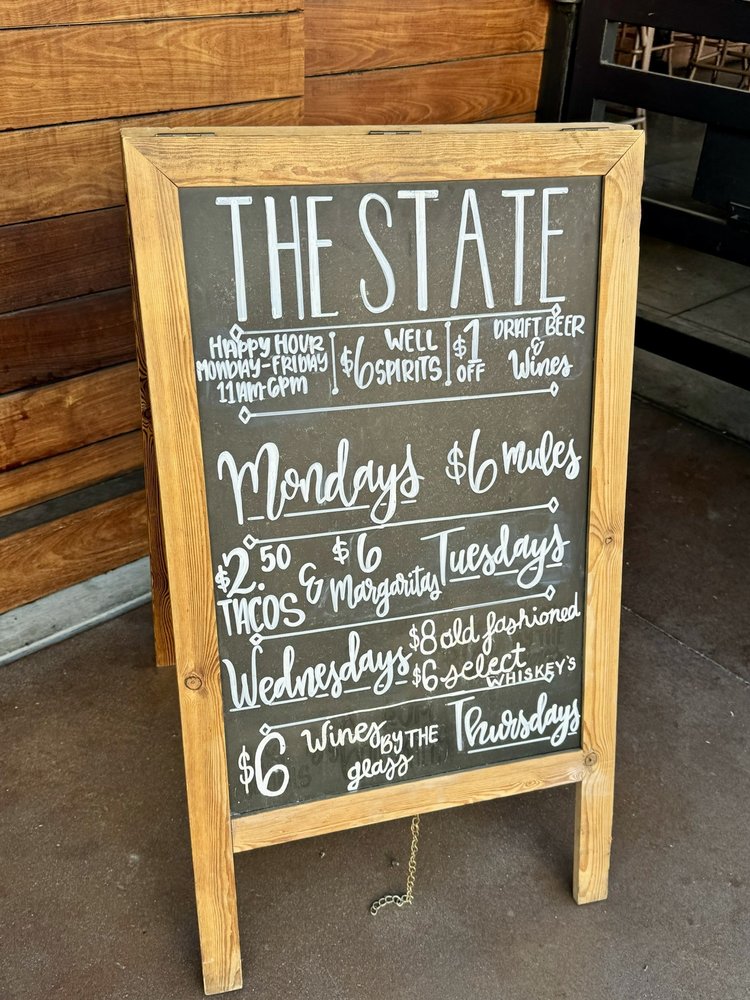 THE STATE
HAPPY HOUR
MONDAY-FRIDAY
11AM-6PM
$6 WELL
SPIRITS
$1
OFF
DRAFT BEER
&
Wines
Mondays $6 mules
$2.50
TACOS
& $6
Margaritas
Tuesdays
Wednesdays
$8 old fashioned
$6 select
WHISKEY'S
$6 Wines BY THE
glass
Thursdays